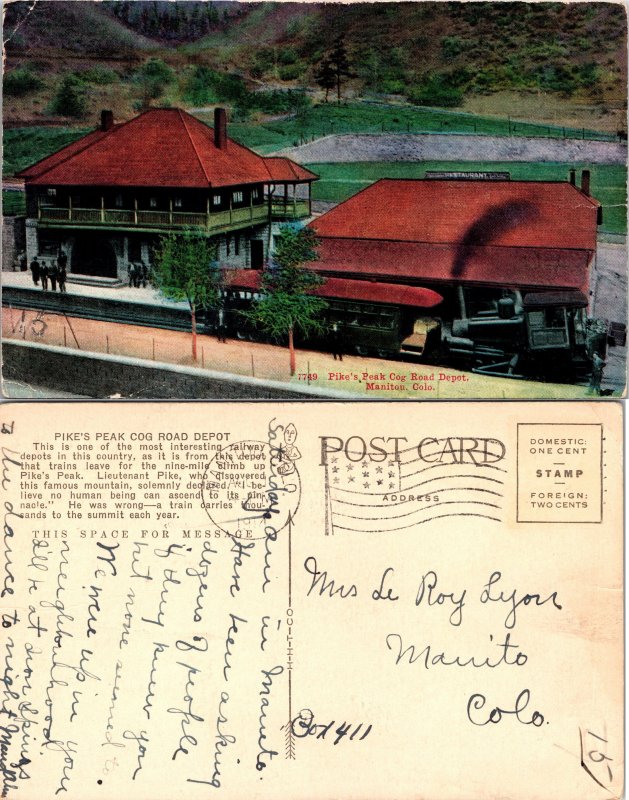 RESTAURANT
15
7749 Pike's Peak Cog Road Depot.
Maniton, Colo.
PIKE'S PEAK COG ROAD DEPOT
This is one of the most interesting railway
depots in this country, as it is from this depot
that trains leave for the nine-mile climb up
Pike's Peak. Lieutenant Pike, who discovered
this famous mountain, solemnly declared, "I be-
lieve no human being can ascend to its pin-
nacle." He was wrong—a train carries thou-
sands to the summit each year.
THIS SPACE FOR MESSAGE
Saturday
am in Manito.
Have been asking
dozens of people
if they know you
but none seemed to.
We were up in your
neighbourhood
I'll be at Iron Springs
to the dance to night
POST CARD
ADDRESS
DOMESTIC:
ONE CENT
STAMP
FOREIGN:
TWO CENTS
H-H-T-CO
Mrs Le Roy Lyon
Manito
Colo.
Box 411
15